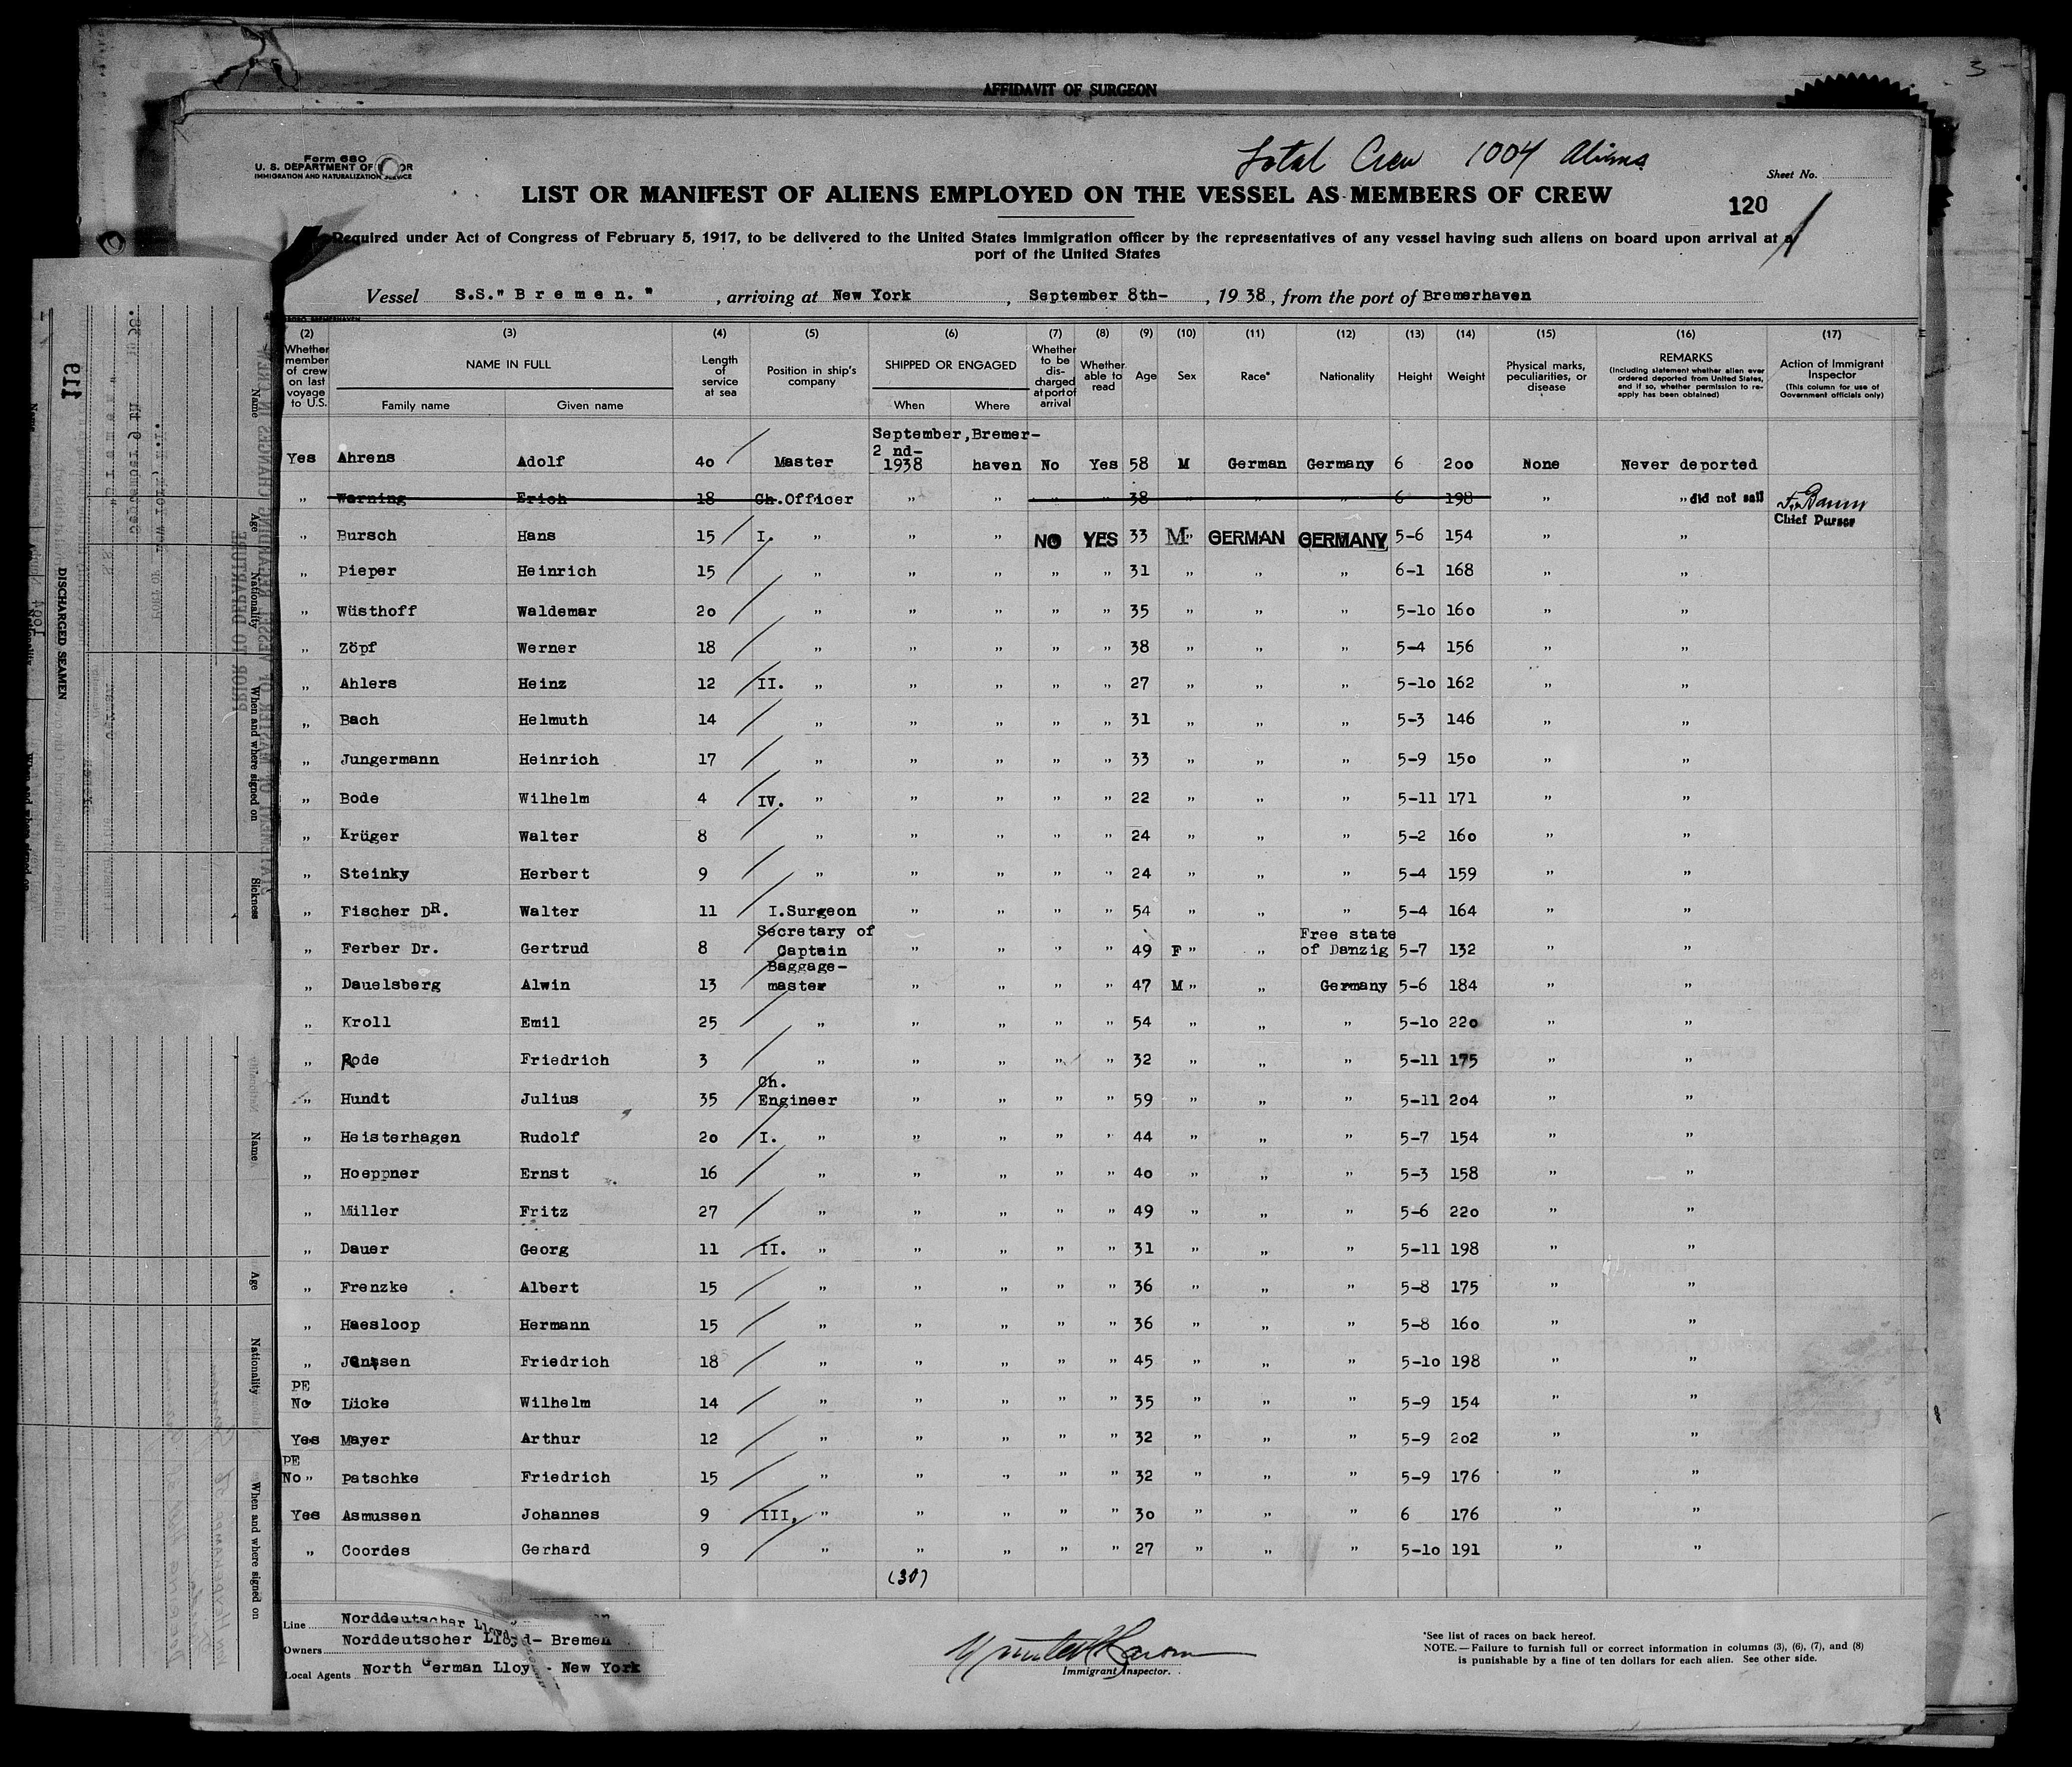 AFFIDAVIT OF SURGEON
3
Total Crew 1004 Aliens
Form 680
U. S. DEPARTMENT OF
IMMIGRATION AND NATURALIZATION SERVICE
Sheet No.
LIST OR MANIFEST OF ALIENS EMPLOYED ON THE VESSEL AS MEMBERS OF CREW
120
Required under Act of Congress of February 5, 1917, to be delivered to the United States Immigration officer by the representatives of any vessel having such aliens on board upon arrival at a
port of the United States
Vessel S.S." B r e m e n. " , arriving at New York , September 8th- , 1938, from the port of Bremerhaven
(2) (3) (4) (5) (6) (7) (8) (9) (10) (11) (12) (13) (14) (15) (16) (17)
Whether member of crew on last voyage to U.S. NAME IN FULL Length of service at sea Position in ship's company SHIPPED OR ENGAGED Whether to be discharged at port of arrival Whether able to read Age Sex Race* Nationality Height Weight Physical marks, peculiarities, or disease REMARKS (Including statement whether alien ever ordered deported from United States, and if so, whether permission to reapply has been obtained) Action of Immigrant Inspector (This column for use of Government officials only)
Family name Given name When Where
September, Bremer-
2 nd-
Yes Ahrens Adolf 4o Master 1938 haven No Yes 58 M German Germany 6 2oo None Never deported
" Warning Erich 18 Ch.Officer " " " " 38 " " " 6 198 " " did not sail
Chief Purser
" Bursch Hans 15 I. " " " NO YES 33 M " GERMAN GERMANY 5-6 154 " "
" Pieper Heinrich 15 " " " " " 31 " " " 6-1 168 " "
" Wüsthoff Waldemar 2o " " " " " 35 " " " 5-1o 16o " "
" Zöpf Werner 18 " " " " " 38 " " " 5-4 156 " "
" Ahlers Heinz 12 II. " " " " " 27 " " " 5-1o 162 " "
" Bach Helmuth 14 " " " " " 31 " " " 5-3 146 " "
" Jungermann Heinrich 17 " " " " " 33 " " " 5-9 15o " "
" Bode Wilhelm 4 IV. " " " " " 22 " " " 5-11 171 " "
" Krüger Walter 8 " " " " " 24 " " " 5-2 16o " "
" Steinky Herbert 9 " " " " " 24 " " " 5-4 159 " "
" Fischer DR. Walter 11 I.Surgeon " " " " 54 " " " 5-4 164 " "
" Ferber Dr. Gertrud 8 Secretary of Captain " " " " 49 F " " Free state of Danzig 5-7 132 " "
" Dauelsberg Alwin 13 Baggage-master " " " " 47 M " " Germany 5-6 184 " "
" Kroll Emil 25 " " " " " 54 " " " 5-1o 22o " "
" Rode Friedrich 3 " " " " " 32 " " " 5-11 175 " "
" Hundt Julius 35 Ch. Engineer " " " " 59 " " " 5-11 2o4 " "
" Heisterhagen Rudolf 2o I. " " " " " 44 " " " 5-7 154 " "
" Hoeppner Ernst 16 " " " " " 4o " " " 5-3 158 " "
" Müller Fritz 27 " " " " " 49 " " " 5-6 22o " "
" Dauer Georg 11 II. " " " " " 31 " " " 5-11 198 " "
" Frenzke Albert 15 " " " " " 36 " " " 5-8 175 " "
" Haesloop Hermann 15 " " " " " 36 " " " 5-8 16o " "
" Janssen Friedrich 18 " " " " " 45 " " " 5-1o 198 " "
PE
No Lücke Wilhelm 14 " " " " " 35 " " " 5-9 154 " "
Yes Mayer Arthur 12 " " " " " 32 " " " 5-9 2o2 " "
PE
No " Patschke Friedrich 15 " " " " " 32 " " " 5-9 176 " "
Yes Asmussen Johannes 9 III. " " " " " 3o " " " 6 176 " "
" Coordes Gerhard 9 " " " " " 27 " " " 5-1o 191 " "
(30)
Line Norddeutscher Lloyd
Owners Norddeutscher Lloyd- Bremen
Local Agents North German Lloyd - New York
Immigrant Inspector.
*See list of races on back hereof.
NOTE.—Failure to furnish full or correct information in columns (3), (6), (7), and (8)
is punishable by a fine of ten dollars for each alien. See other side.
119
DISCHARGED SEAMEN
Name
Age
Nationality
When and where signed on
Sickness
Name
Age
Nationality
When and where signed on